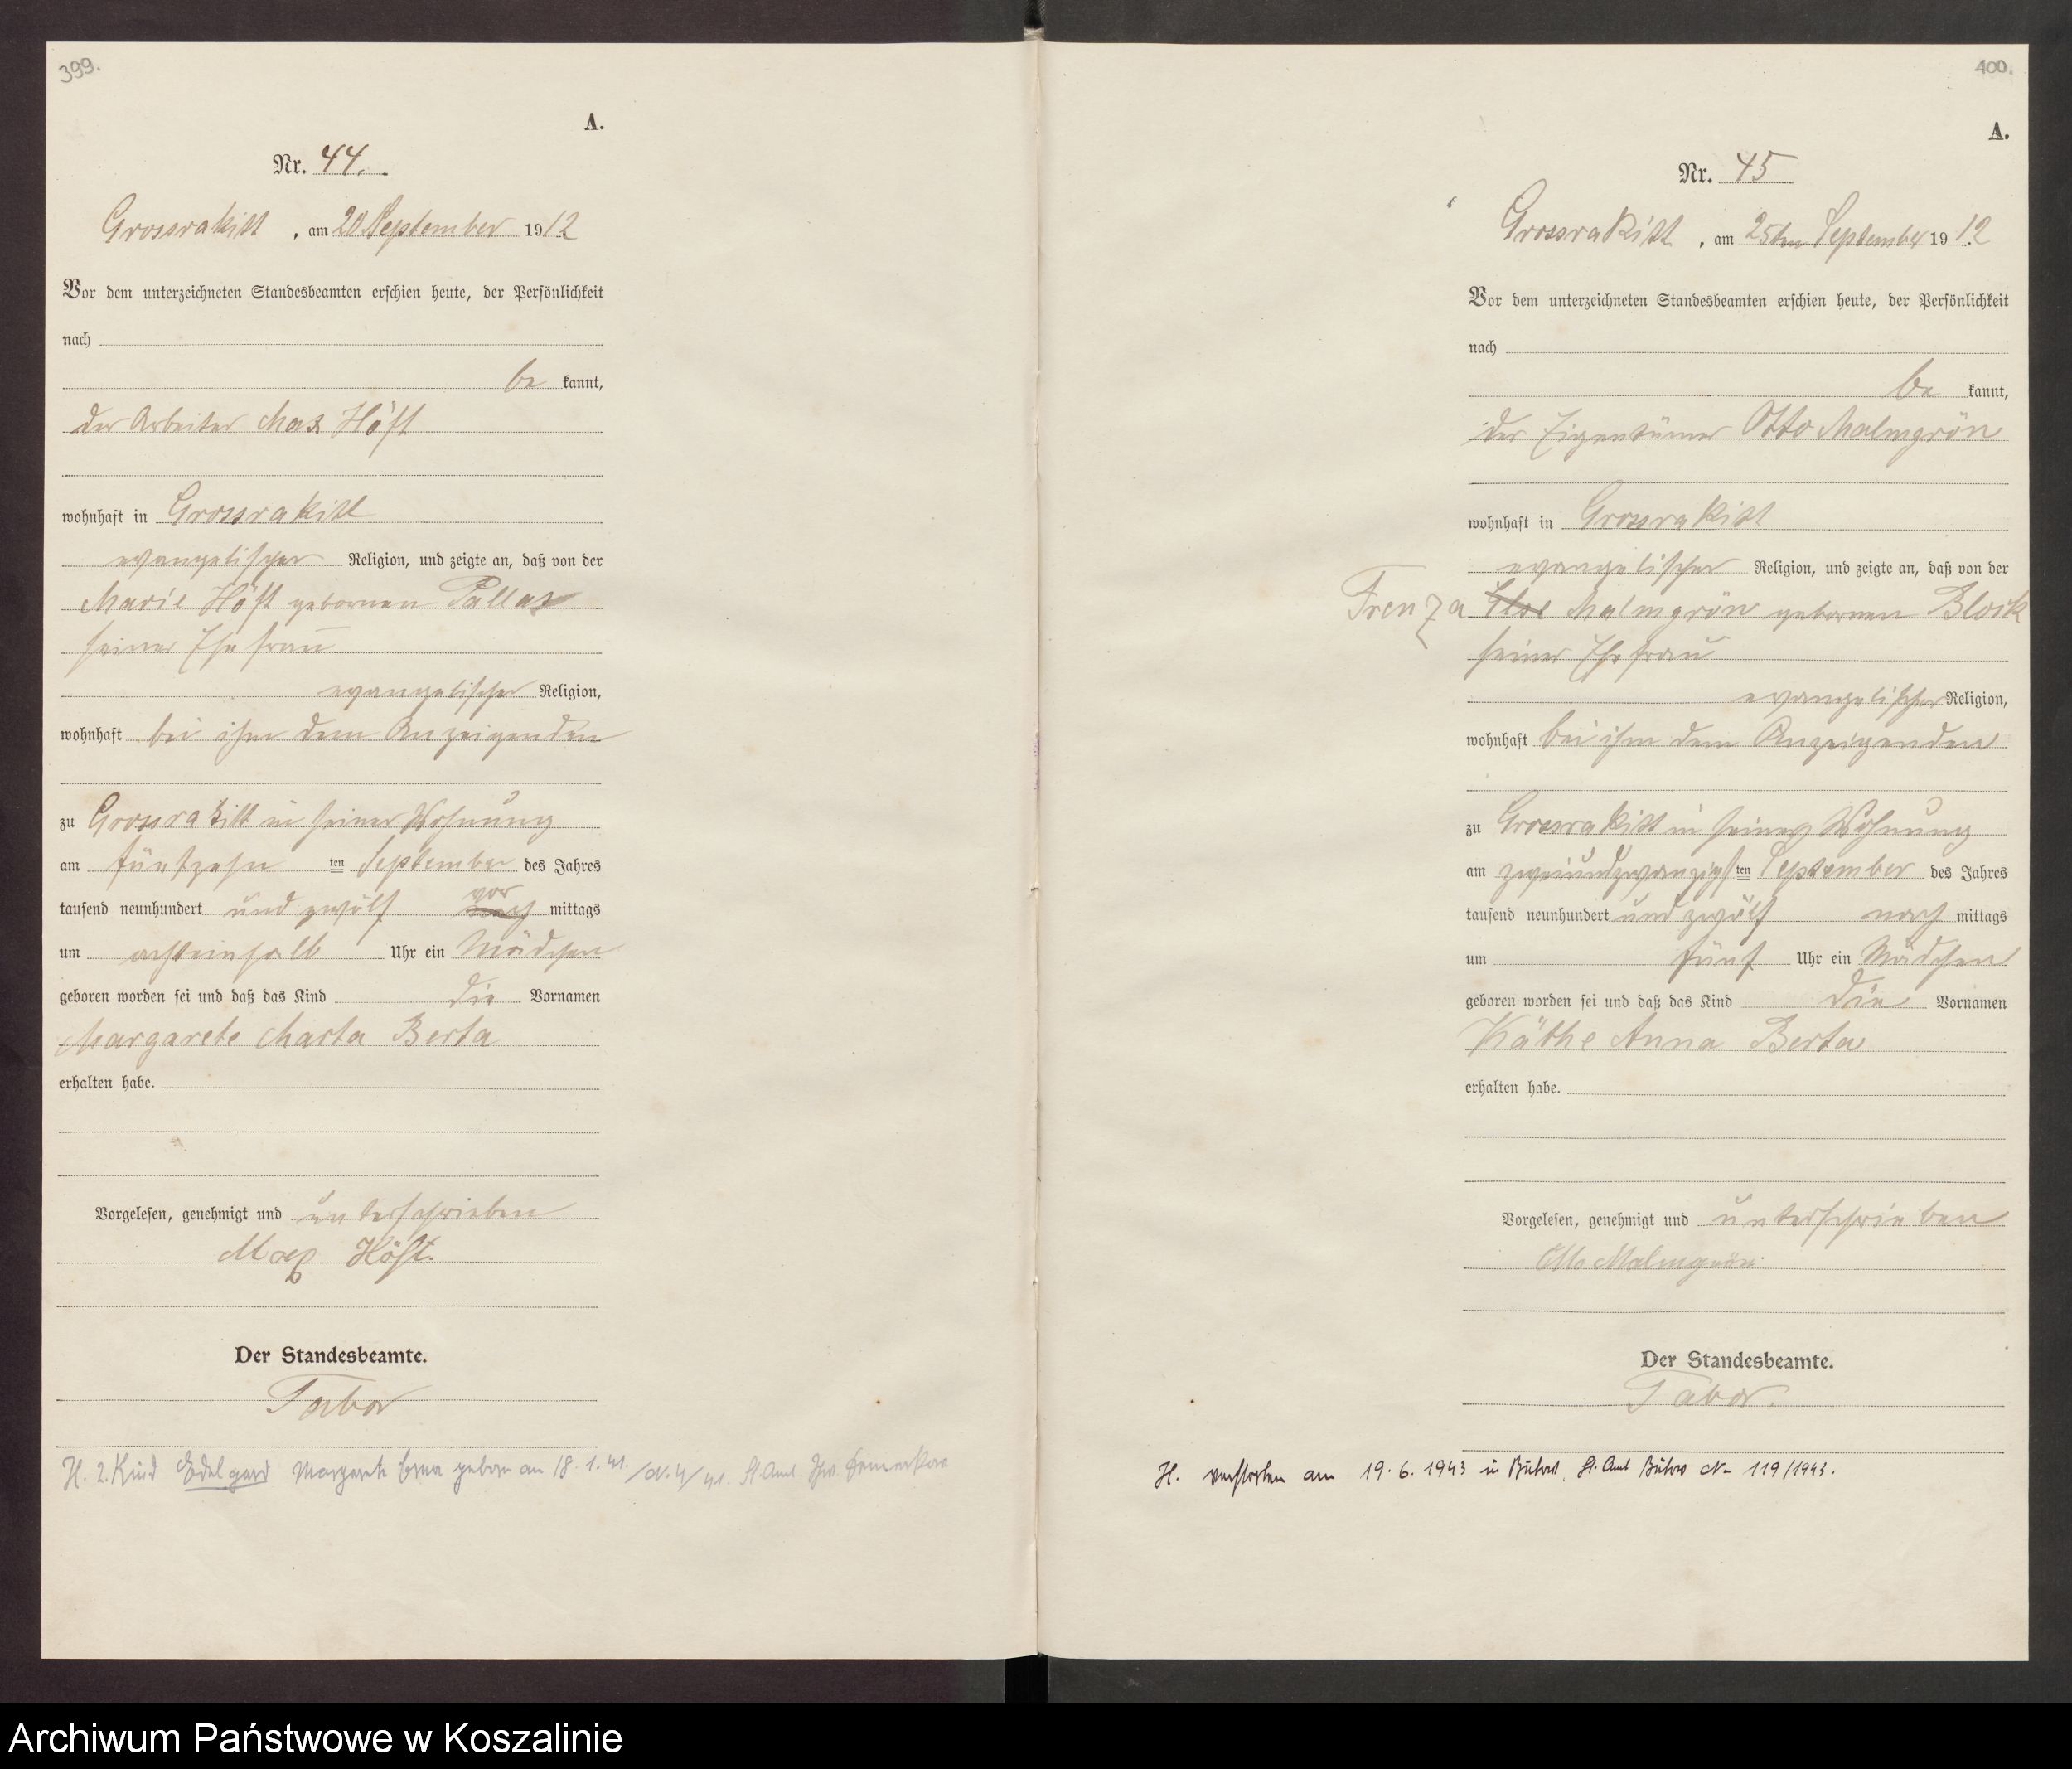 399.
A.
Nr. 44.
Grossrakitt, am 20 September 1912
Vor dem unterzeichneten Standesbeamten erschien heute, der Persönlichkeit
nach
be kannt,
der Arbeiter Max Höft
wohnhaft in Grossrakitt
evangelischer Religion, und zeigte an, daß von der
Marie Höft gebornen Pallas
seiner Ehefrau
evangelischer Religion,
wohnhaft bei ihm dem Anzeigenden
zu Grossrakitt in seiner Wohnung
am fünfzehn ten September des Jahres
tausend neunhundert und zwölf nach vor mittags
um achteinhalb Uhr ein Mädchen
geboren worden sei und daß das Kind die Vornamen
Margarete Marta Berta
erhalten habe.
Vorgelesen, genehmigt und unterschrieben
Max Höft.
Der Standesbeamte.
Tabor
H. 2. Kind Edelgard Margarete Erna geboren am 18.1.41. /Nr. 4/41. St. Amt
400.
A.
Nr. 45
Grossrakitt, am 25ten September 1912
Vor dem unterzeichneten Standesbeamten erschien heute, der Persönlichkeit
nach
be kannt,
der Eigentümer Otto Malmgrön
wohnhaft in Grossrakitt
evangelischer Religion, und zeigte an, daß von der
Frenza Malmgrön gebornen Block
seiner Ehefrau
evangelischer Religion,
wohnhaft bei ihm dem Anzeigenden
zu Grossrakitt in seiner Wohnung
am zweiundzwanzigsten September des Jahres
tausend neunhundert und zwölf nach mittags
um fünf Uhr ein Mädchen
geboren worden sei und daß das Kind die Vornamen
Käthe Anna Berta
erhalten habe.
Vorgelesen, genehmigt und unterschrieben
Otto Malmgrön.
Der Standesbeamte.
Tabor.
H. verstorben am 19.6.1943 in Bütow, St. Amt Bütow Nr. 119/1943.
Archiwum Państwowe w Koszalinie